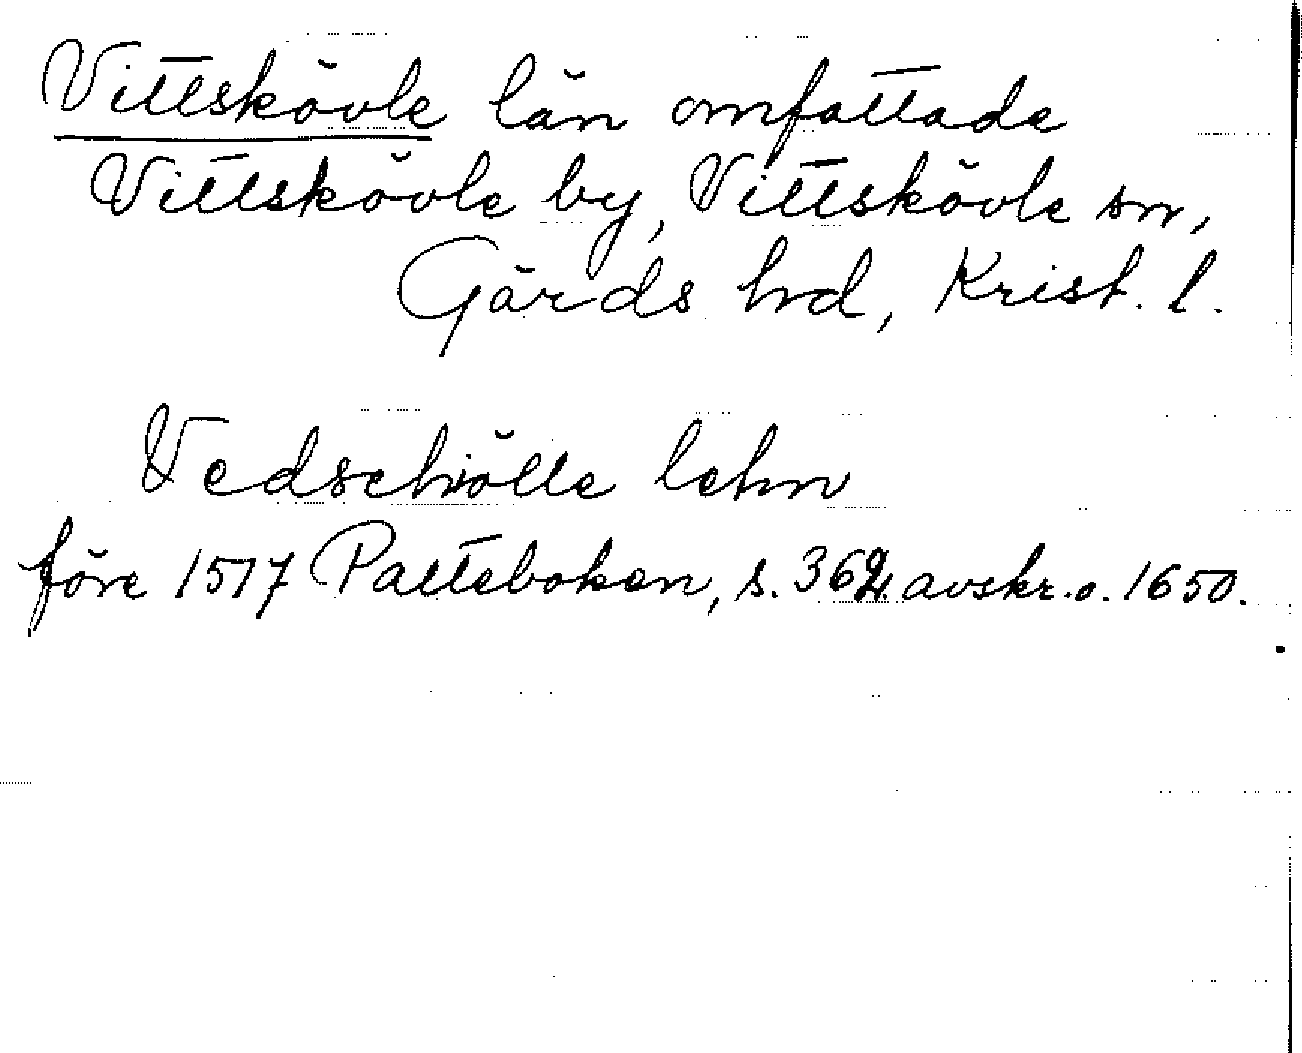 Vittskövle län omfattade
Vittskövle by, Vittskövle sn,
Gärds hrd, Krist. l.
Vedschiölle lehn
före 1517 Palteboken, s. 362, avskr. o. 1650.